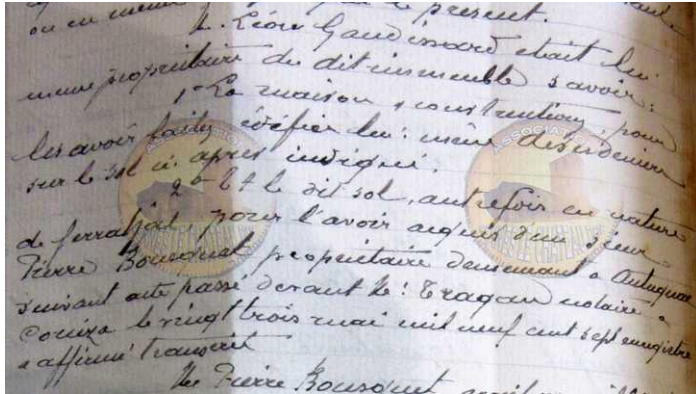 ou en meme le present.
M. Léon Gaudissard etait lui
meme propriétaire du dit immeuble savoir:
1º La maison & constructions, pour
les avoir faits édifier lui-même de ses deniers
sur le sol ci après indiqué.
2º Et le dit sol, autrefois en nature
de ferratjal, pour l'avoir acquis d'un sieur
Pierre Bousquet propriétaire demeurant à Antugnac
suivant acte passé devant Me: Tragan notaire à
Couiza le vingt trois mai mil neuf cent sept enregistré
& affirmé transcrit
Me Pierre Bousquet avait
ASSOCIATION
ASSOCIATION